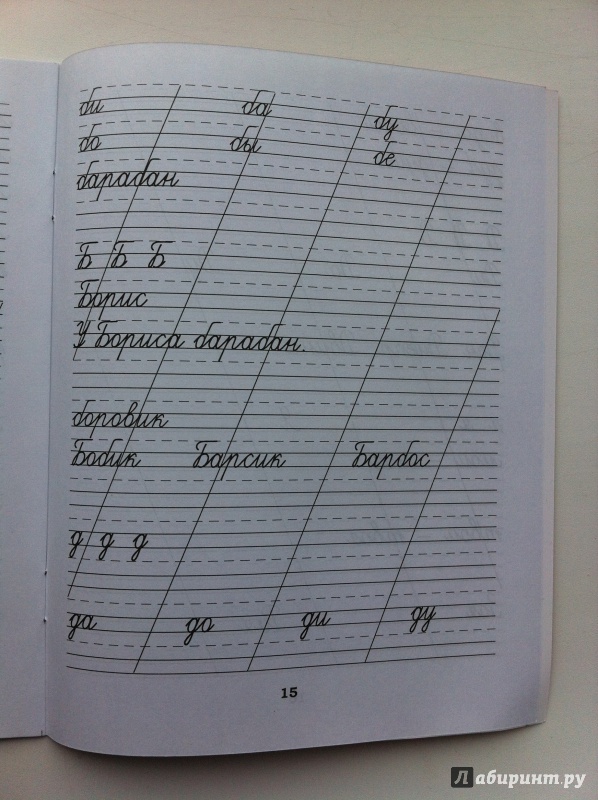 би ба бу
бо бы бе
барабан
Б Б Б
Борис
У Бориса барабан.
боровик
Бобик Барсик Барбос
д д д
да до ди ду
15
Лабиринт.ру